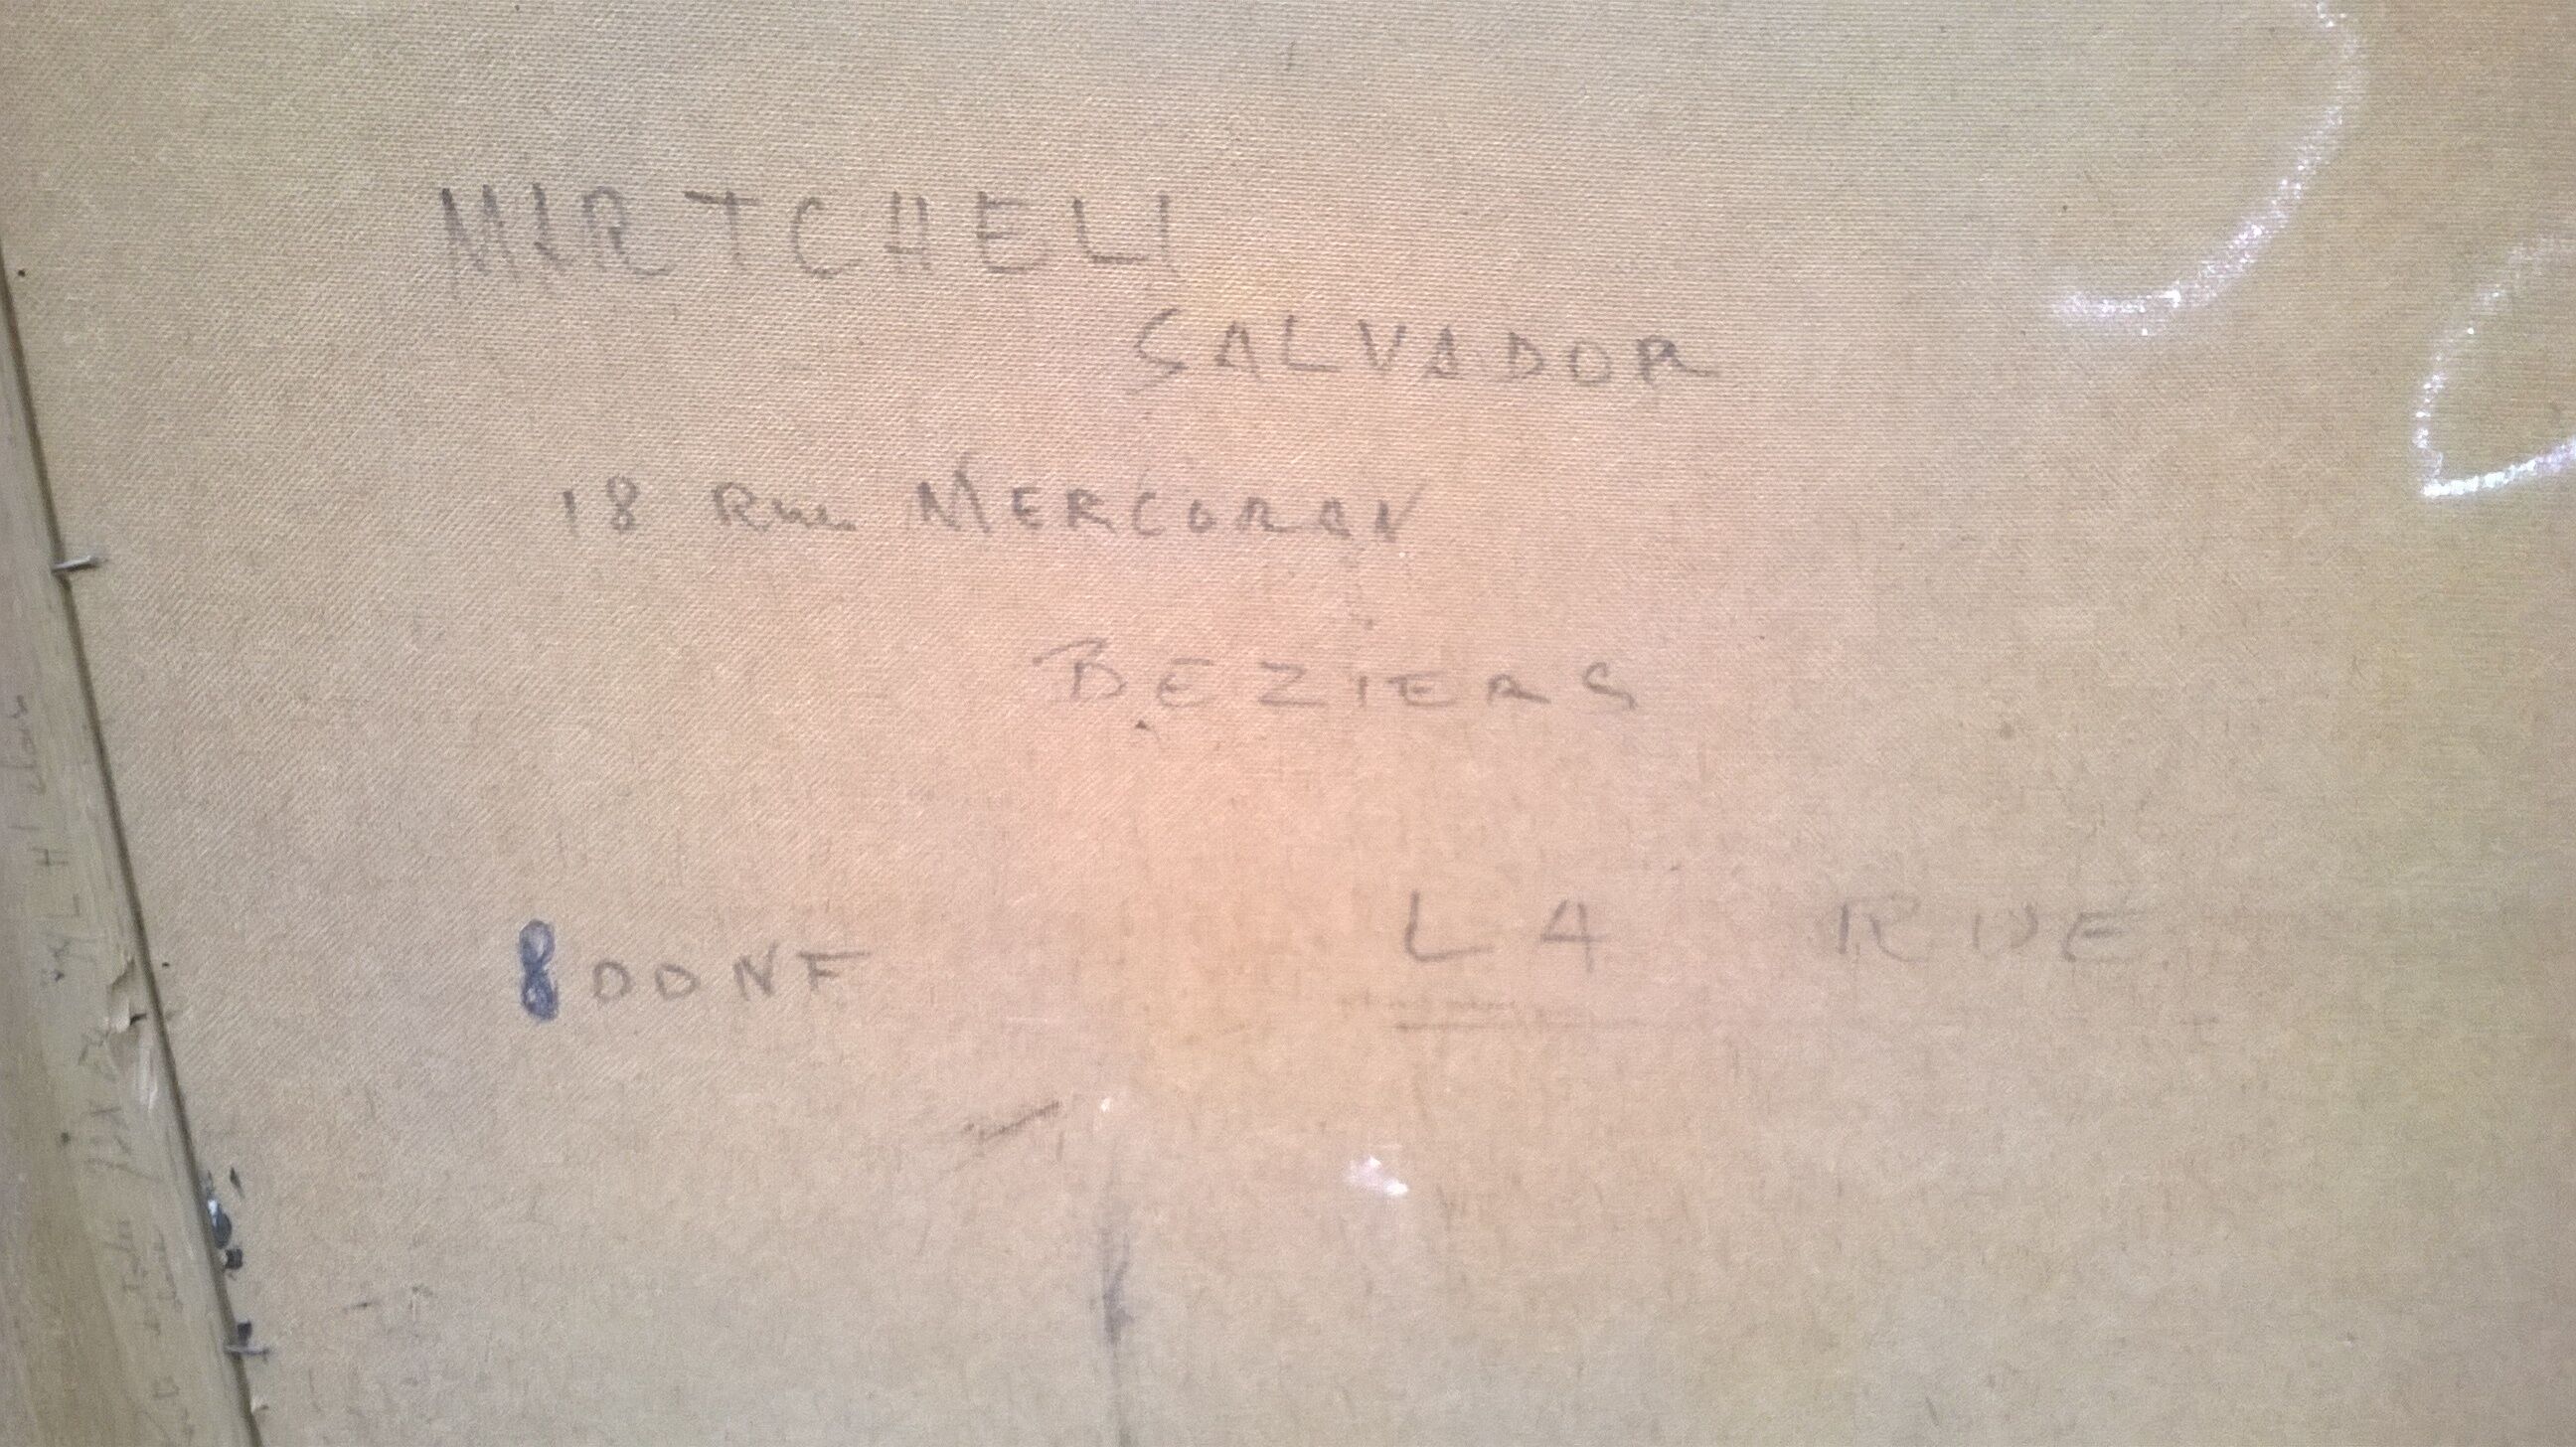 MARTCHELI
SALVADOR
18 Rue MERCORAN
BEZIERS
800NF
LA RUE